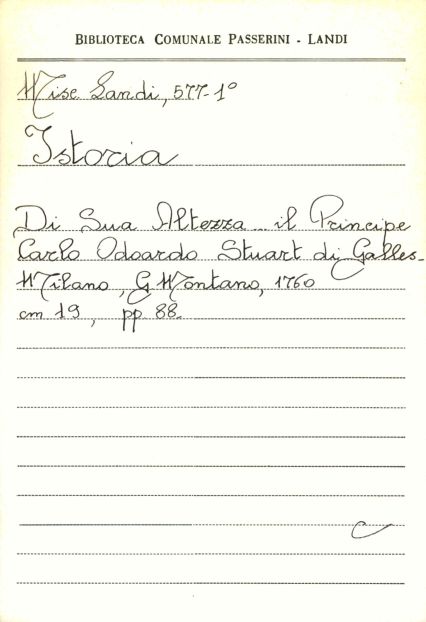 BIBLIOTECA COMUNALE PASSERINI - LANDI
Misc. Landi, 577-1°
Istoria
Di Sua Altezza il Principe
Carlo Odoardo Stuart di Galles-
Milano, G. Montano, 1760
cm 19, pp. 88.
C